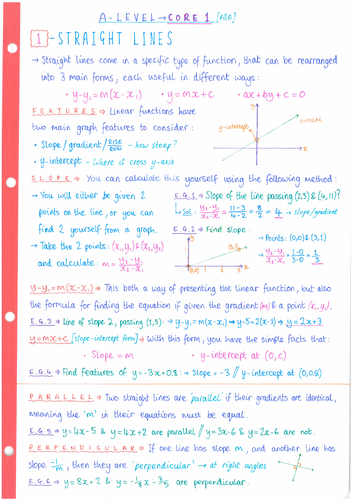 A-LEVEL → CORE 1 [AQA]
1 - STRAIGHT LINES
→ Straight lines come in a specific type of function, that can be rearranged
into 3 main forms, each useful in different ways:
• y-y₁=m(x-x₁) • y=mx+c • ax+by+c=0
FEATURES → Linear functions have
two main graph features to consider:
• Slope/gradient/RISE/RUN - how steep?
• y-intercept - Where it cross y-axis
y-intercept
x
SLOPE → You can calculate this yourself using the following method:
→ You will either be given 2
points on the line, or you can
find 2 yourself from a graph.
→ Take the 2 points: (x₁,y₁) & (x₂,y₂)
and calculate: m = y₂-y₁/x₂-x₁
E.G.1 → Slope of the line passing (2,3) & (4,11)?
↳ Sol: y₂-y₁/x₂-x₁ = 11-3/4-2 = 8/2 = 4 → slope/gradient
E.G.2 → Find slope:
→ Points: (0,0) & (3,1)
y₂-y₁/x₂-x₁ = 1-0/3-0 = 1/3
y-y₁=m(x-x₁) → This both a way of presenting the linear function, but also
the formula for finding the equation if given the gradient (m) & a point (x₁,y₁).
E.G.3 → Line of slope 2, passing (1,5): → y-y₁=m(x-x₁) → y-5=2(x-1) → y=2x+3
y=mx+c [slope-intercept form] → With this form, you have the simple facts that:
• Slope = m • y-intercept at (0,c)
E.G.4 → Find features of y=-3x+0.8: → Slope = -3 // y-intercept at (0,0.8)
PARALLEL → Two straight lines are 'parallel' if their gradients are identical,
meaning the 'm' in their equations must be equal.
E.G.5 → y=4x-5 & y=4x+2 are parallel // y=3x-6 & y=2x-6 are not.
PERPENDICULAR → If one line has slope m, and another line has
slope -1/m, then they are 'perpendicular' → at right angles
E.G.6 → y=8x+2 & y=-1/8x-3.5 are perpendicular.